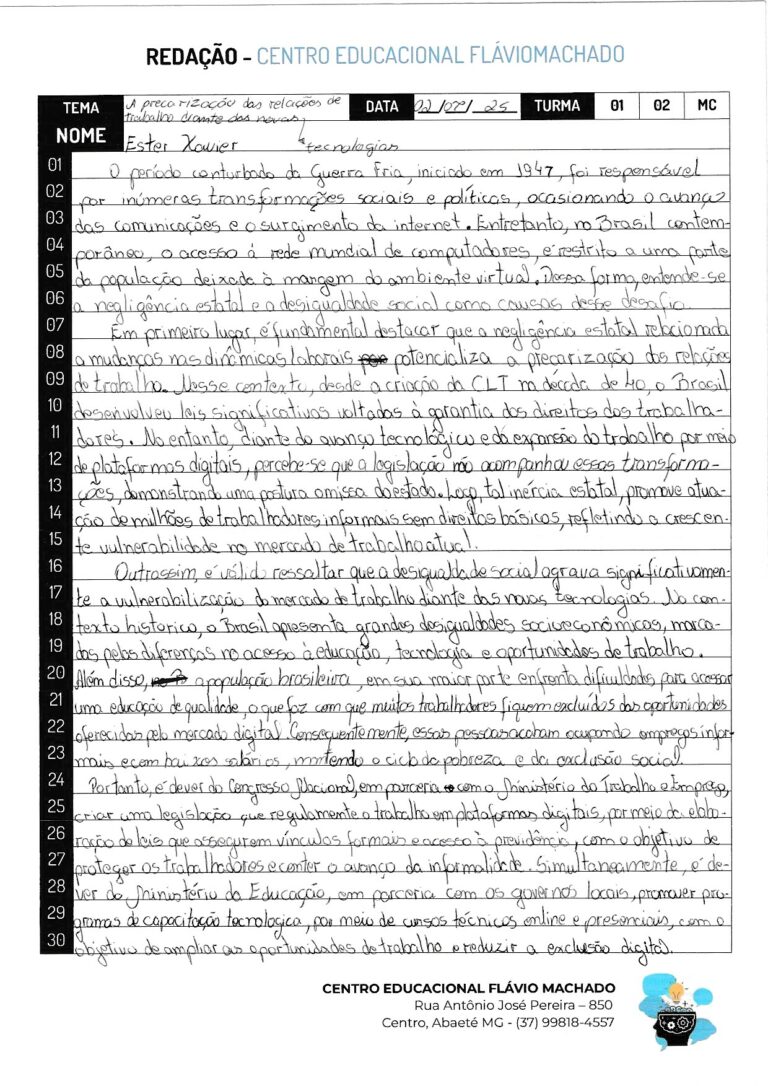 REDAÇÃO - CENTRO EDUCACIONAL FLÁVIOMACHADO
TEMA A precarização das relações de trabalho diante das novas tecnologias DATA 02/07/25 TURMA 01 02 MC
NOME Ester Xavier
01 O período conturbado da Guerra Fria, iniciado em 1947, foi responsável
02 por inúmeras transformações sociais e políticas, ocasionando o avanço
03 das comunicações e o surgimento da internet. Entretanto, no Brasil contem-
04 porâneo, o acesso à rede mundial de computadores, é restrito a uma parte
05 da população deixada à margem do ambiente virtual. Dessa forma, entende-se
06 a negligência estatal e a desigualdade social como causas desse desafio.
07 Em primeiro lugar, é fundamental destacar que a negligência estatal relacionada
08 a mudanças nas dinâmicas laborais potencializa a precarização das relações
09 de trabalho. Nesse contexto, desde a criação da CLT na década de 40, o Brasil
10 desenvolveu leis significativas voltadas à garantia dos direitos dos trabalha-
11 dores. No entanto, diante do avanço tecnológico e da expansão do trabalho por meio
12 de plataformas digitais, percebe-se que a legislação não acompanhou essas transforma-
13 ções, demonstrando uma postura omissa do estado. Logo, tal inércia estatal, promove atua-
14 ção de milhões de trabalhadores informais sem direitos básicos, refletindo a crescen-
15 te vulnerabilidade no mercado de trabalho atual.
16 Outrassim, é válido ressaltar que a desigualdade social agrava significativamen-
17 te a vulnerabilização do mercado de trabalho diante das novas tecnologias. No con-
18 texto historico, o Brasil apresenta grandes desigualdades socioeconômicas, marca-
19 das pelas diferenças no acesso à educação, tecnologia e oportunidades de trabalho.
20 Além disso, a população brasileira, em sua maior parte enfrenta dificuldades para acessar
21 uma educação de qualidade, o que faz com que muitos trabalhadores fiquem excluídos das oportunidades
22 oferecidas pelo mercado digital. Consequentemente, essas pessoas acabam ocupando empregos infor-
23 mais e com baixos salários, mantendo o ciclo da pobreza e da exclusão social.
24 Portanto, é dever do Congresso Nacional, em parceria com o Ministério do Trabalho e Emprego,
25 criar uma legislação que regulamente o trabalho em plataformas digitais, por meio da elabo-
26 ração de leis que assegurem vínculos formais e acesso à previdência, com o objetivo de
27 proteger os trabalhadores e conter o avanço da informalidade. Simultaneamente, é de-
28 ver do Ministério da Educação, em parceria com os governos locais, promover pro-
29 gramas de capacitação tecnologica, por meio de cursos técnicos online e presenciais, com o
30 objetivo de ampliar as oportunidades de trabalho e reduzir a exclusão digital.
CENTRO EDUCACIONAL FLÁVIO MACHADO
Rua Antônio José Pereira – 850
Centro, Abaeté MG - (37) 99818-4557